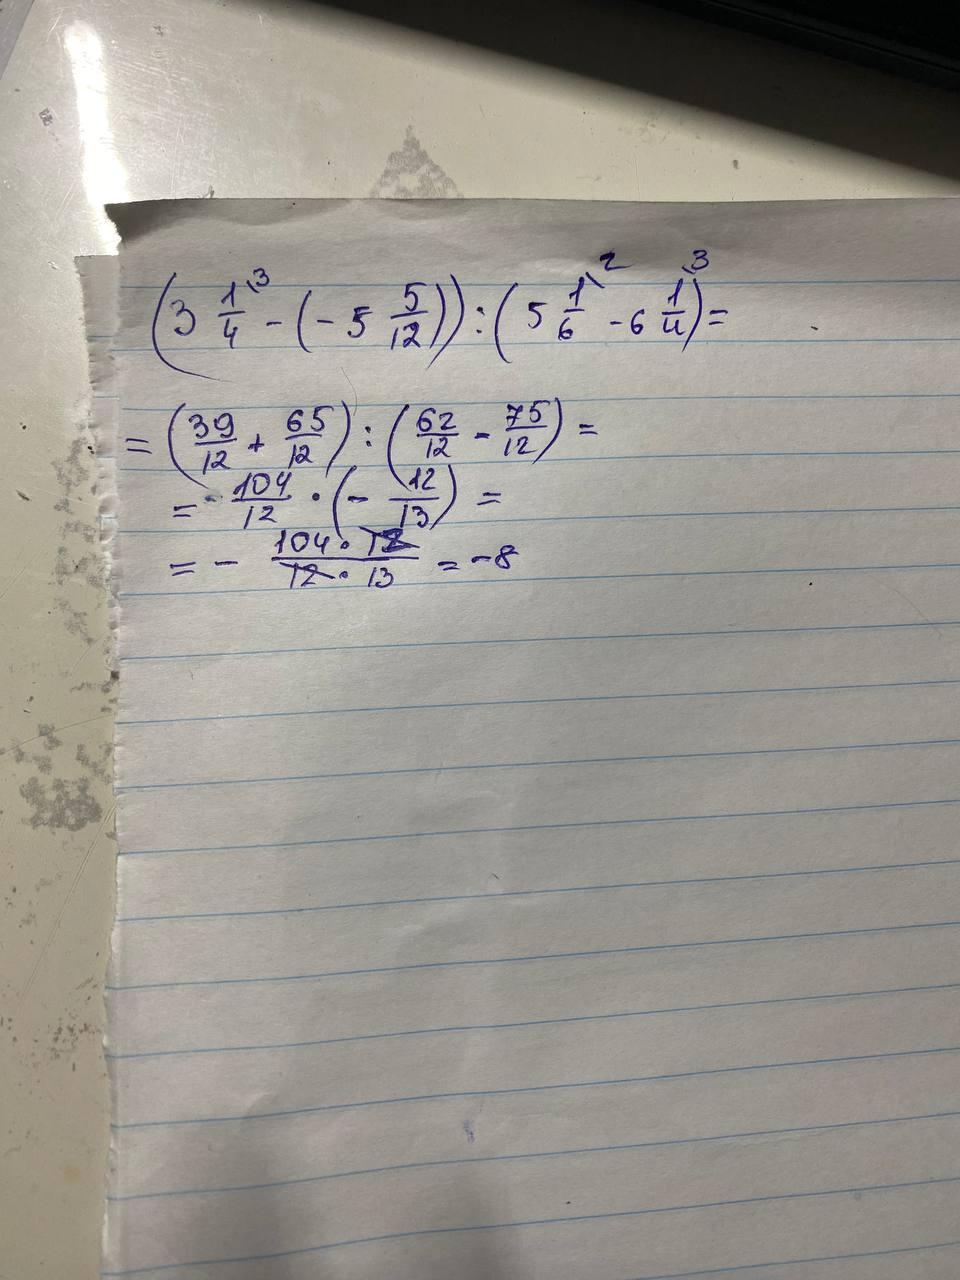 (3 1/4 \3 - (- 5 5/12)) : (5 1/6 \2 - 6 1/4 \3) =
= (39/12 + 65/12) : (62/12 - 75/12) =
= 104/12 · (- 12/13) =
= - 104 · 12 / 12 · 13 = -8